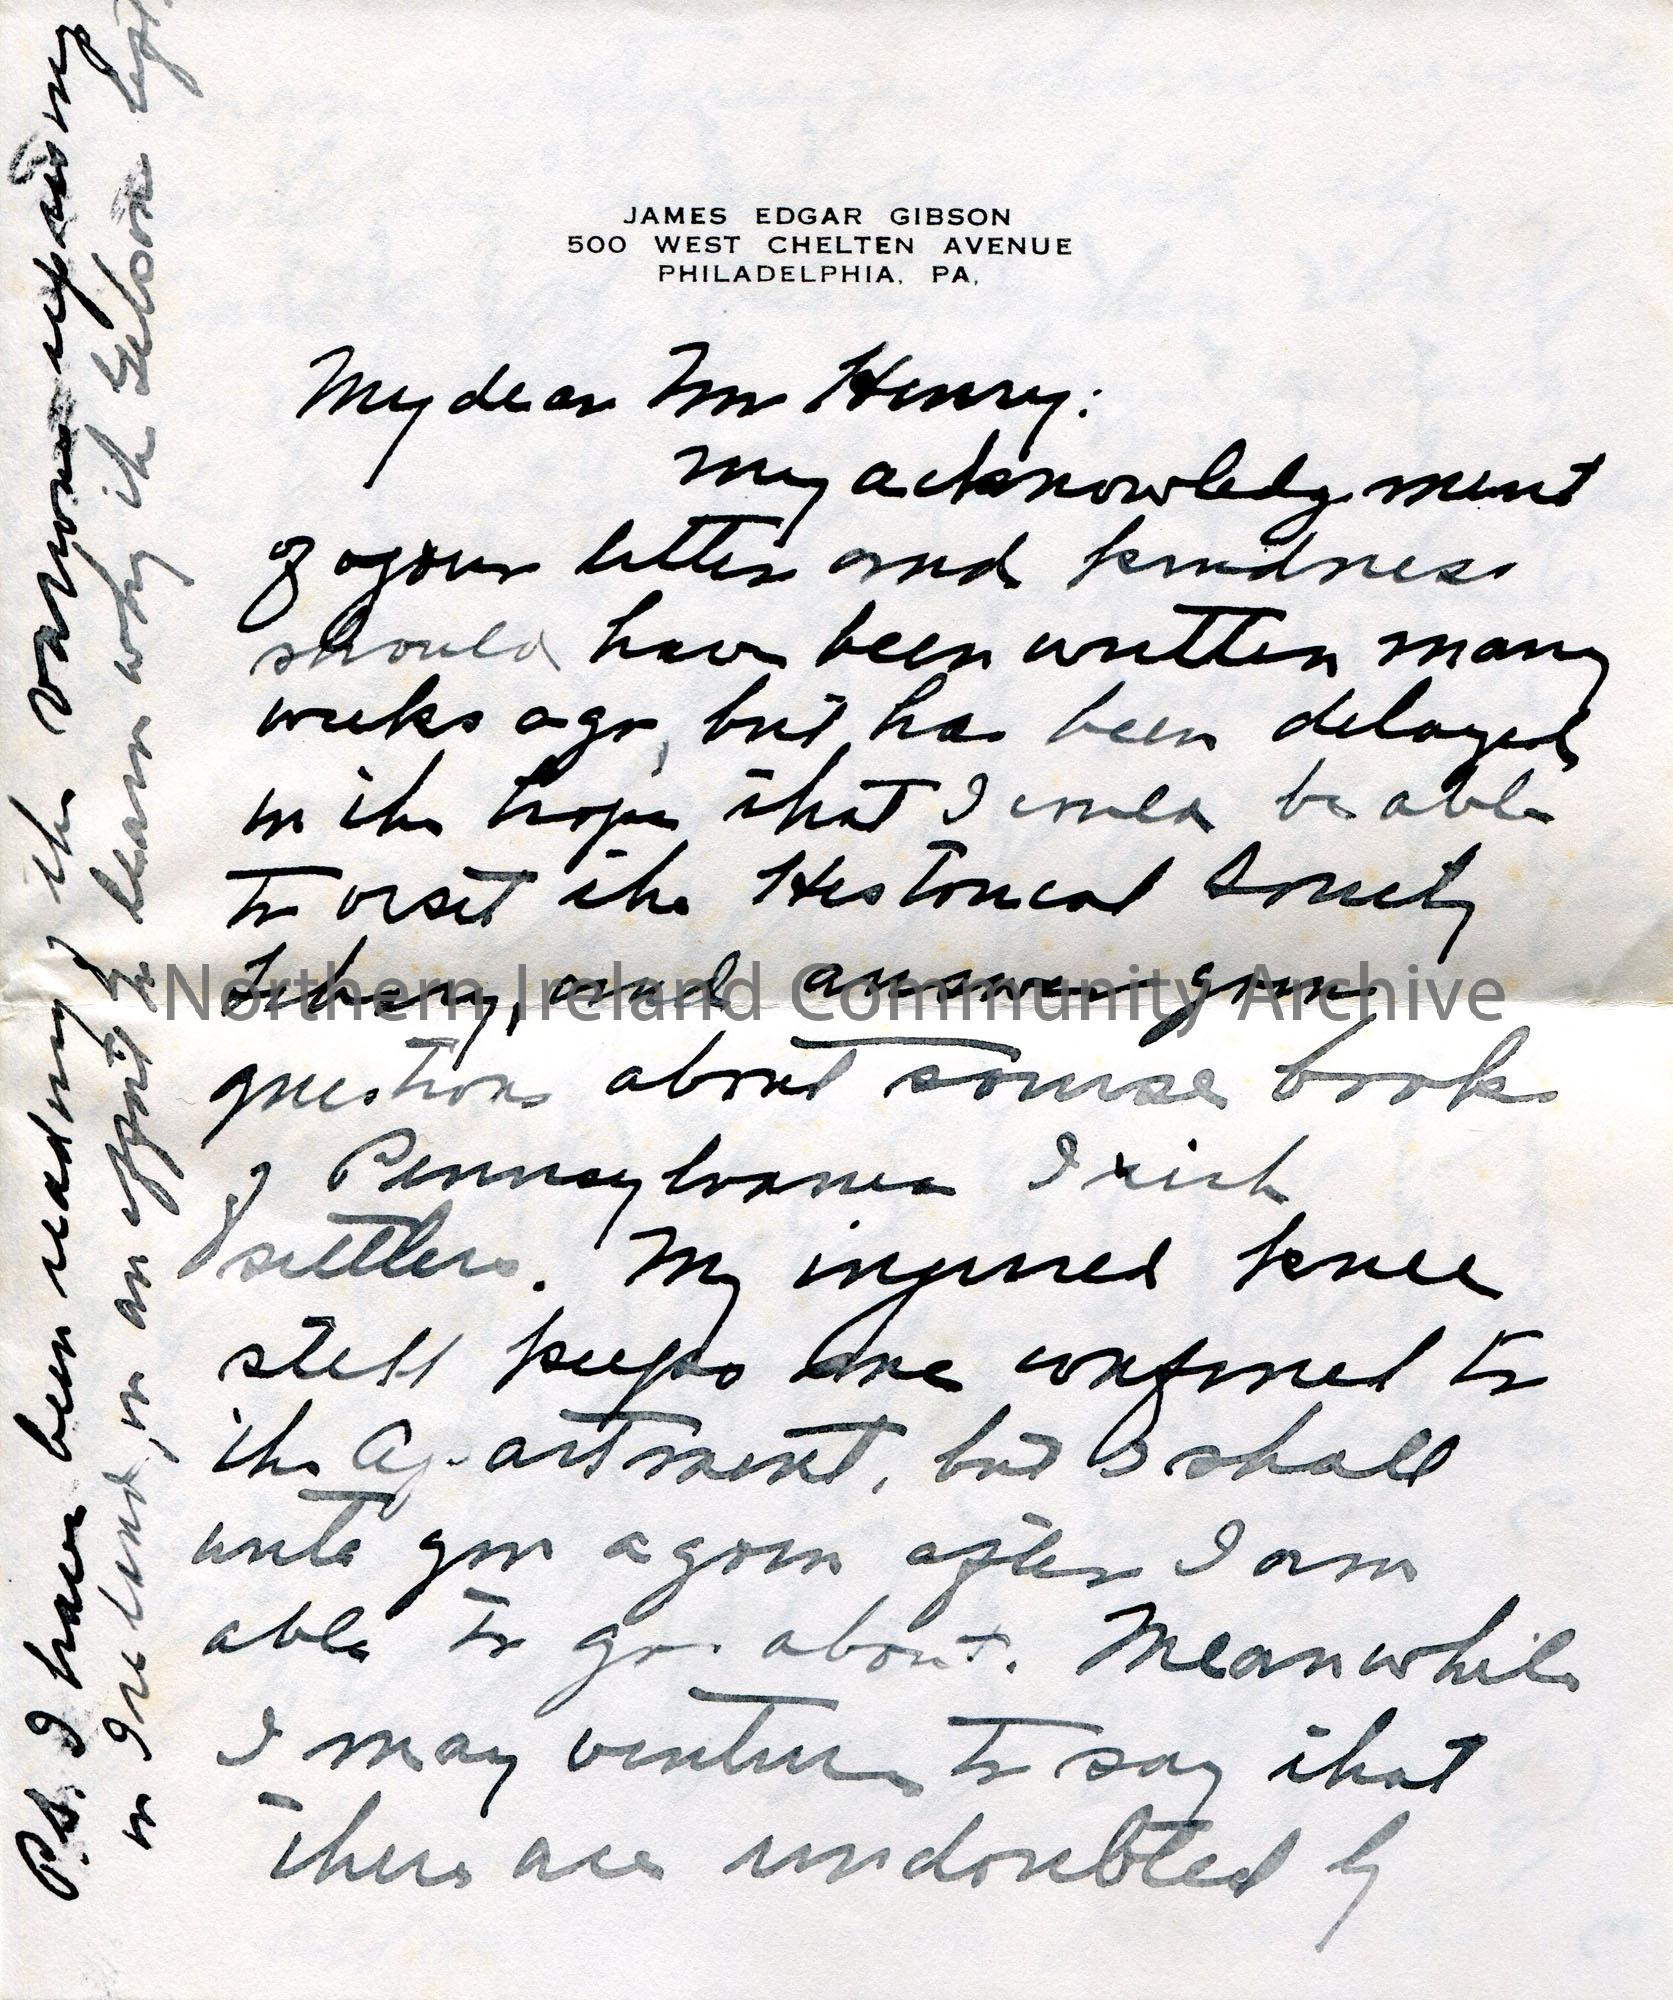 JAMES EDGAR GIBSON
500 WEST CHELTEN AVENUE
PHILADELPHIA, PA.
My dear Mr Henry:
My acknowledgement
of your letter and kindness
should have been written many
weeks ago, but has been delayed
in the hope that I could be able
to visit the Historical Society
Library, and answer your
questions about sourse books
of Pennsylvania Irish
settlers. My injured knee
still keeps me confined to
the Apartment, but I shall
write you again after I am
able to go about. Meanwhile
I may venture to say that
there are undoubtedly
P.S. I have been reading of the various uprisings
in Ireland, in an effort to learn why the Gibsons left
Northern Ireland Community Archive